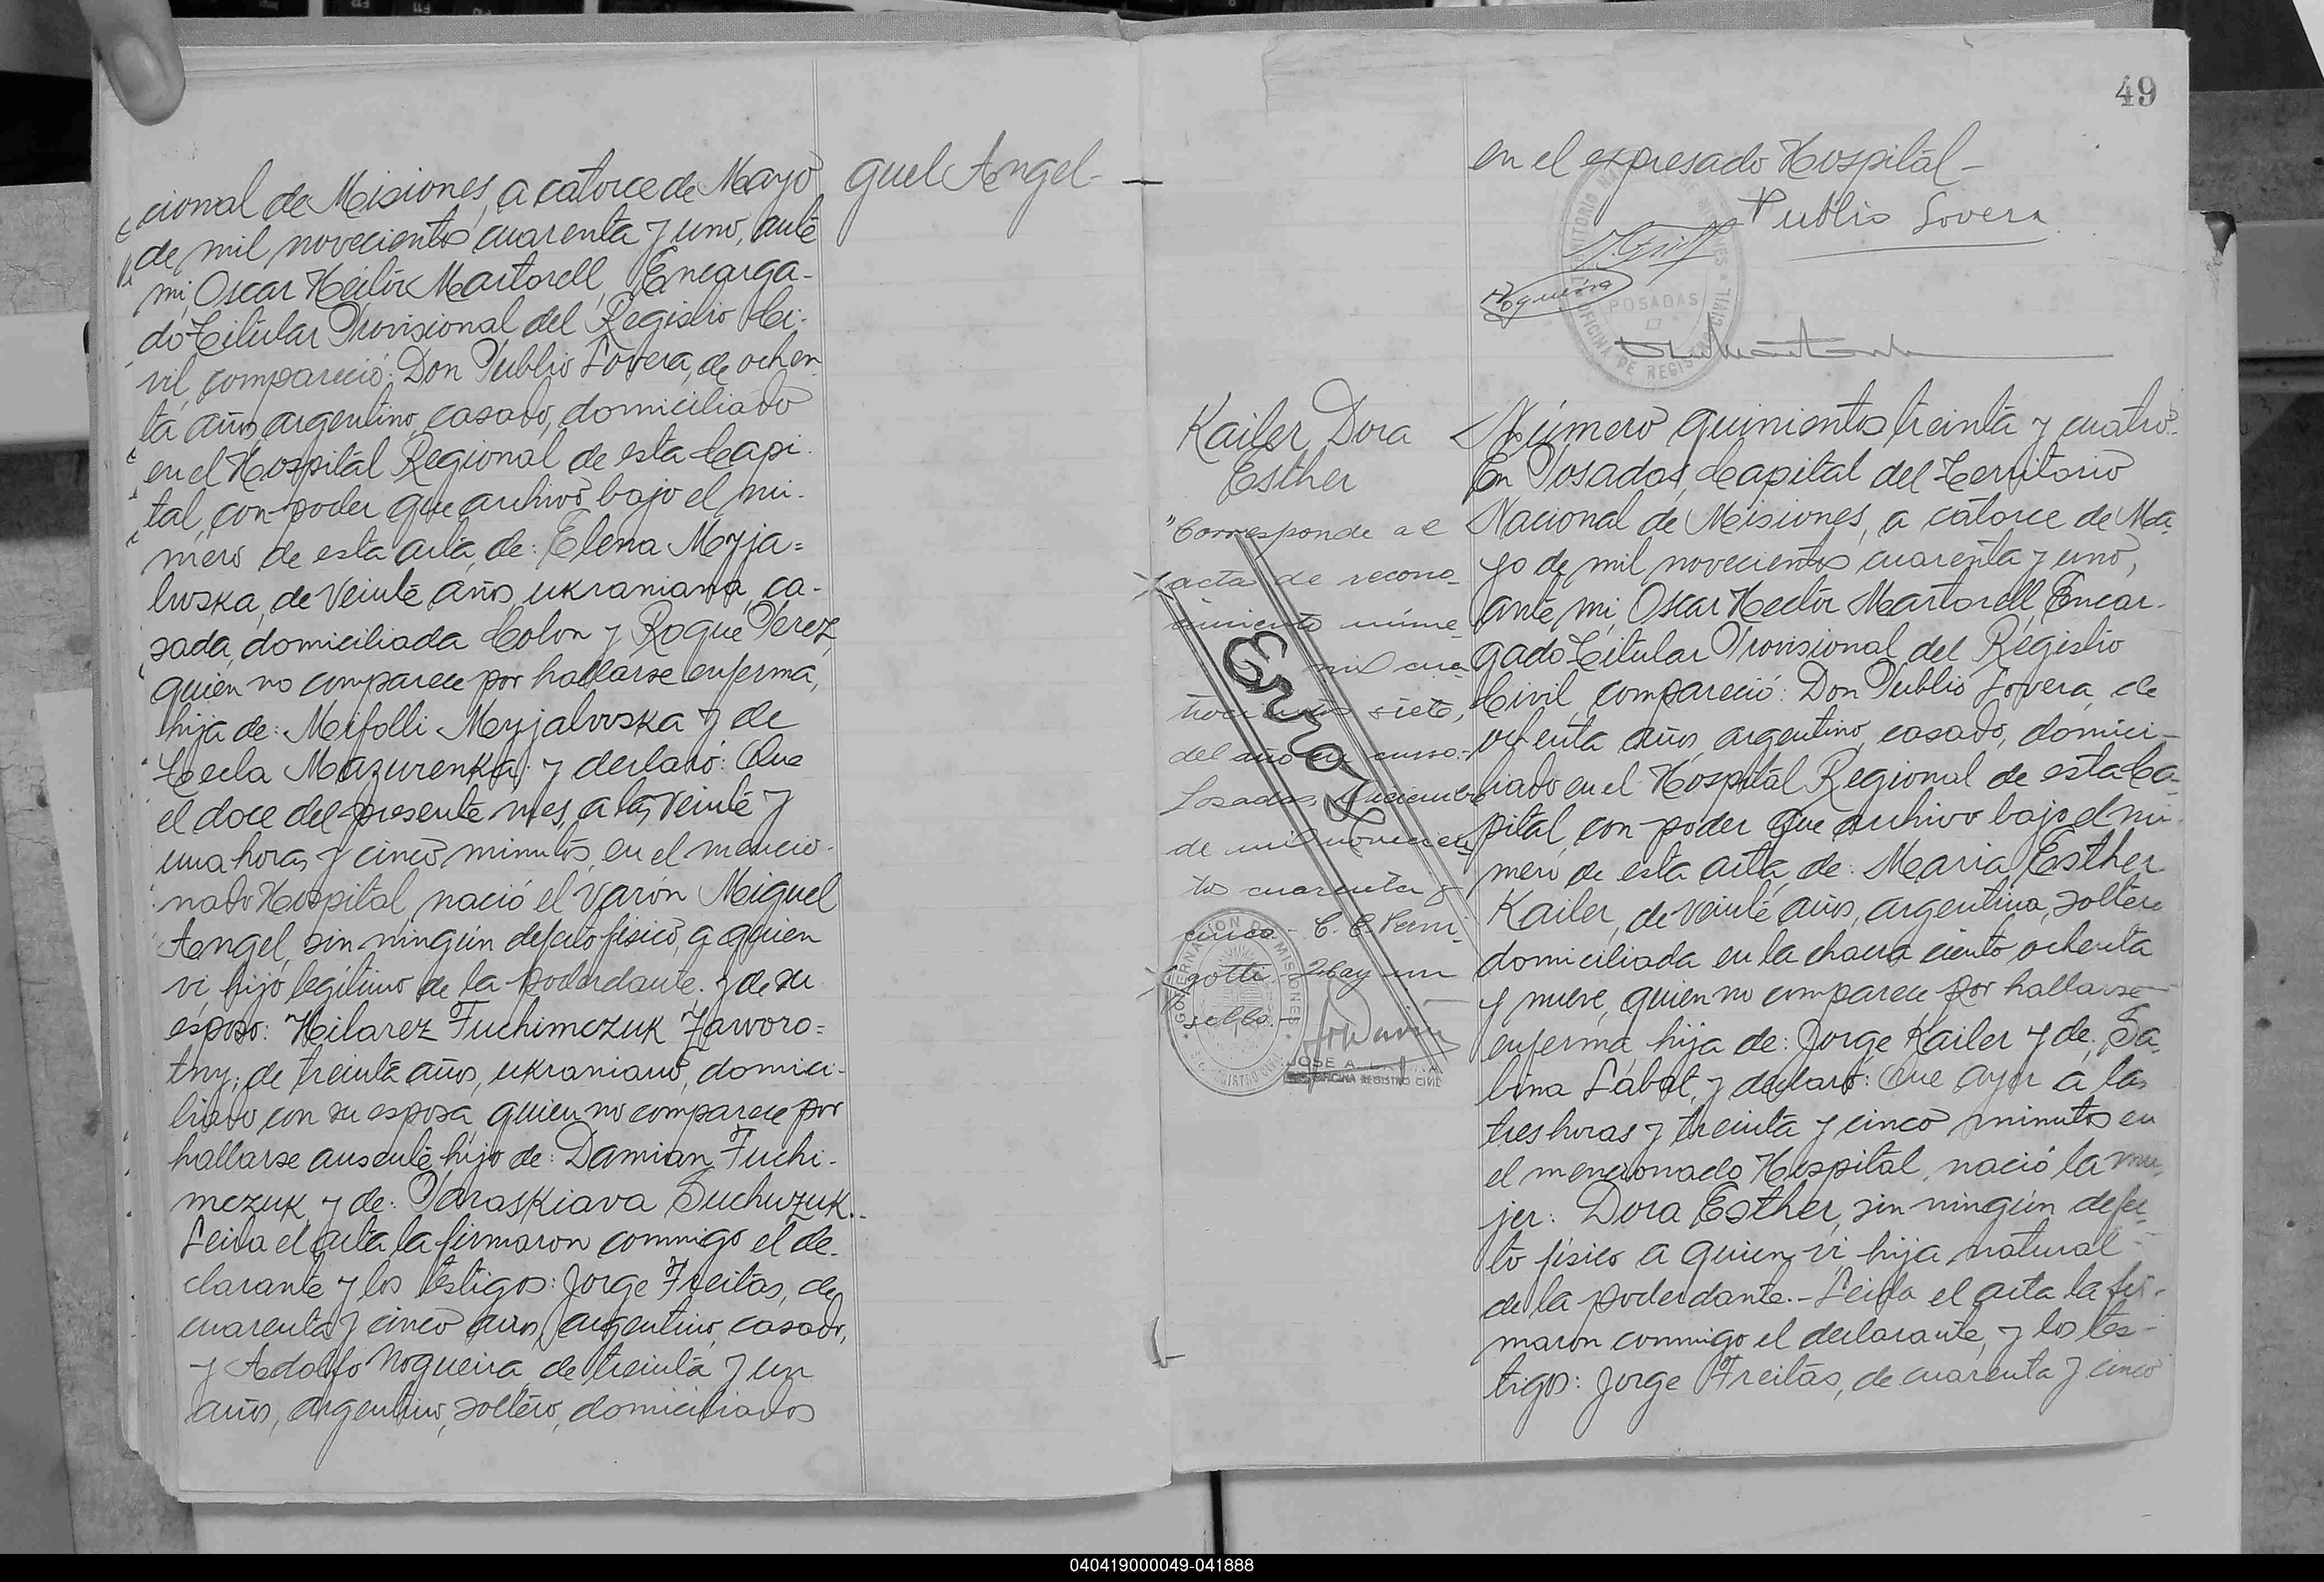 cional de Misiones, a catorce de Mayo
de mil novecientos cuarenta y uno, ante
mi, Oscar Hector Martorell, Encarga-
do Titular Provisional del Registro Ci-
vil, compareció: Don Publio Lovera, de ochen
ta años, argentino, casado, domiciliado
en el Hospital Regional de esta Capi-
tal, con poder que archivo bajo el nú-
mero de esta acta, de: Elena Myja=
lwska, de veinte años, ukraniana, ca-
sada, domiciliada Colon y Roque Perez,
quien no comparece por hallarse enferma,
hija de: Mifolli Myjalwska y de
Tecla Mazurenka; y declaró: Que
el doce del presente mes, a las veinte y
una horas y cinco minutos, en el mencio-
nado Hospital, nació el varón Miguel
Angel, sin ningún defecto fisico, a quien
vi, hijo legítimo de la poderdante. y de su
esposo: Hilarez Fuchimczuk Jaworo=
tny; de treinta años, ukraniano, domici-
liado con su esposa, quien no comparece por
hallarse ausente, hijo de: Damian Fuchi-
mczuk y de: Paraskiava Suchwzuk.-
Leida el acta la firmaron conmigo el de-
clarante y los testigos: Jorge Freitas, de
cuarenta y cinco años, argentino, casado,
y Adolfo Nogueira, de treinta y un
años, argentino, soltero, domiciliados
guel Angel-
49
en el expresado Hospital-
Publio Lovera
Nogueira
POSADAS
OFICINA DE REGISTRO CIVIL
Kailer Dora
Esther
"Corresponde al
acta de recono-
cimiento núme-
mil cua
trocientos siete,
del año en curso.-
Posadas, Diciembre
de mil novecien
tos cuarenta y
cinco - C. C. Perni-
gotti. Hay un
sello.-
Errose
GOBERNACION DE MISIONES
JOSE A.
OFICINA REGISTRO CIVIL
Número quinientos treinta y cuatro-
En Posadas, Capital del Territorio
Nacional de Misiones, a catorce de Ma-
yo de mil novecientos cuarenta y uno,
ante mi, Oscar Hector Martorell, Encar-
gado Titular Provisional del Registro
Civil, compareció: Don Publio Lovera, de
ochenta años, argentino, casado, domici-
liado en el Hospital Regional de esta Ca-
pital, con poder que archivo bajo el nú-
mero de esta acta, de: Maria Esther
Kailer, de veinte años, argentina, soltera
domiciliada en la chacra ciento ochenta
y nueve, quien no comparece por hallarse
enferma, hija de: Jorge Kailer y de: Sa-
bina Labat, y declaró: Que ayer a las
tres horas y treinta y cinco minutos en
el mencionado Hospital, nació la mu-
jer: Dora Esther, sin ningún defec-
to físico a quien vi, hija natural
de la poderdante.- Leida el acta la fir-
maron conmigo el declarante, y los tes-
tigos: Jorge Freitas, de cuarenta y cinco
040419000049-041888